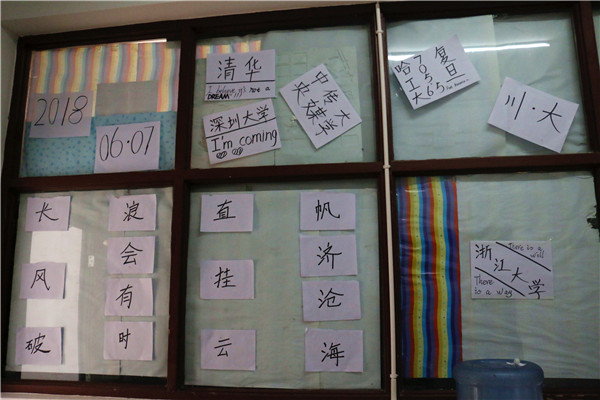 2018
06·07
清华
DREAM
深圳大学
I'm coming
中央
传媒
大学
哈工大
复旦
川·大
长风破
浪会有时
直挂云
帆济沧海
There is a will
浙江大学
There is a way